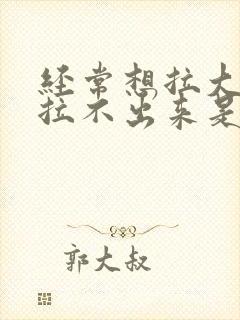 经常想拉大
拉不出来是
郭大叔